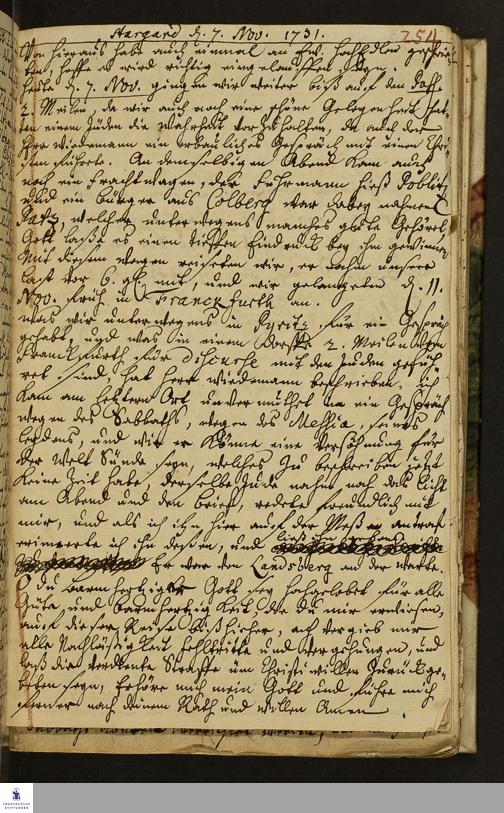 Stargard d. 7. Nov. 1731. 254
Von hieraus habe auch einmal an Ew. HochEdlen geschrie-
ben, hoffe es wird richtig eingelauffen seyn.
heute d. 7. Nov. gingen wir weiter biß auf den Paß
2. Meilen, da wir auch noch eine schöne Gelegenheit hat-
ten einem Juden die Wahrheit vorzuhalten, da auch der
Herr Wiedemann ein erbauliches Gespräch mit einem Chri-
sten führete. An demselbigen Abend kam auch
noch ein Frachtwagen, der Fuhrmann hieß
und ein Bürger aus Colberg war dabey nahmens
welcher unterwegens manches gute gehöret,
Gott laße es einen tieffen Eindruck bey ihm gewinnen.
Mit diesem wagen reiseten wir, er nahm unsere
last vor 6. gl. mit, und wir gelangeten d. 11.
Nov. früh in Franckfurth an.
was wir unterwegens in Pyritz für ein Gespräch
gehabt, und was in einem Dorffe 2. Meilen von
Franckfurth für Discurse mit den Juden gefüh-
ret sind hat Herr Wiedemann beschrieben, ich
kam am letztern Ort unvermuthet in ein Gespräch
wegen des Sabbaths, wegen des Messiae, seines
leidens, und wie er könne eine Versöhnung für
der Welt Sünde seyn, welches zu beschreiben jetzt
keine Zeit habe, derselbe Jude nahm noch das licht
am Abend und den brief, redete freundlich mit
mir, und als ich ihn hier auf der Meße antraf
erinnerte ich ihn deßen, und ließ ihn
Er war von Landsberg an der warte.
O du barmhertziger Gott sey hochgelobet für alle
Güte und barmhertzigkeit die du mir erwiesen,
auf dieser Reise bißhieher, ach vergieb mir
alle Nachläßigkeit fehltritte und vergehungen, und
laß die verdiente Straffe üm Christi willen zurück ge-
ben seyn, Erhöre mich mein Gott und führe mich
ferner nach deinem Rath und willen Amen.
FRANCKESCHE
STIFTUNGEN